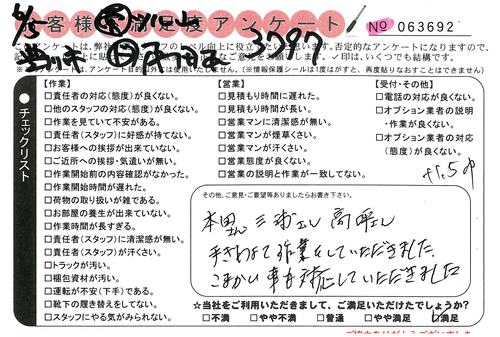 お客様満足度アンケート
№ 063692
3797
このアンケートは、弊社
✓印は、いくつでも結構です。
※このアンケートは、アンケート目的以外には使用いたしません。（※情報保護シールは1度はがすと、再度貼りなおすことはできません）
チェックリスト
【作業】
□責任者の対応（態度）が良くない。
□他のスタッフの対応（態度）が良くない。
□作業を見ていて不安がある。
□責任者（スタッフ）に好感が持てない。
□お客様への挨拶が出来ていない。
□ご近所への挨拶・気遣いが無い。
□作業開始前の内容確認がなかった。
□作業開始時間が遅れた。
□荷物の取り扱いが雑である。
□お部屋の養生が出来ていない。
□作業時間が長すぎる。
□責任者（スタッフ）に清潔感が無い。
□責任者（スタッフ）が汗くさい。
□トラックが汚い。
□梱包資材が汚い。
□運転が不安（下手）である。
□靴下の履き替えをしてない。
□スタッフにやる気がみられない。
【営業】
□見積もり時間に遅れた。
□見積もり時間が長い。
□営業マンに清潔感が無い。
□営業マンが煙草くさい。
□営業マンが汗くさい。
□営業態度が良くない。
□営業の説明と作業が一致してない。
【受付・その他】
□電話の対応が良くない。
□オプション業者の説明
・作業が良くない。
□オプション業者の対応
（態度）が良くない。
その他、ご意見・ご要望等ありましたらお書き下さい。
本田さん 三浦さん 高平さん
手ぎわよく作業をしていただきました。
こまかい事も対応していただきました
☆当社をご利用いただきまして、ご満足いただけたでしょうか？
□不満 □やや不満 □普通 □やや満足 ☑満足
ご協力ありがとうございました